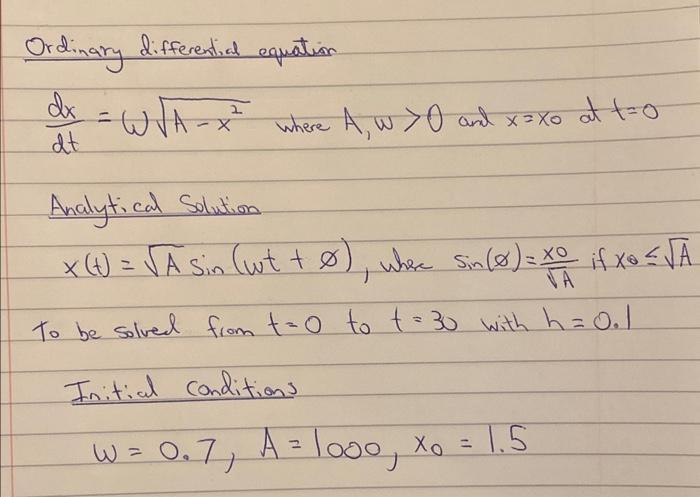 Ordinary differential equation
dx/dt = ω√(A-x²) where A, ω > 0 and x=x0 at t=0
Analytical Solution
x(t) = √A sin(ωt + ø), where sin(ø) = x0/√A if x0 ≤ √A
To be solved from t=0 to t=30 with h=0.1
Initial Conditions
ω = 0.7, A = 1000, x0 = 1.5